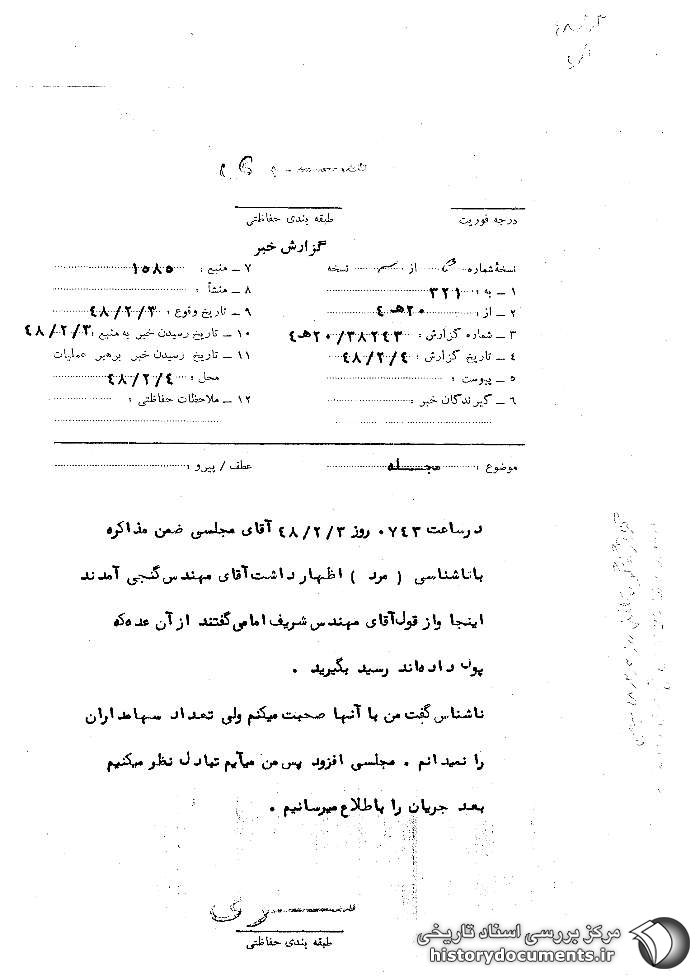 درجه فوریت
طبقه بندی حفاظتی
گزارش خبر
نسخهٔ شماره از نسخه
۱ – به : ۳۲۱
۲ – از : ۲۰هـ ٤
۳ – شماره گزارش : ۳۸۲٤۳/۲۰هـ٤
٤ – تاریخ گزارش : ٤۸/۲/٤
۵ – پیوست :
۶ – گیرندگان خبر :
۷ – منبع : ۱۵۸۵
۸ – منشأ :
۹ – تاریخ وقوع : ٤۸/۲/۳
۱۰ – تاریخ رسیدن خبر به منبع : ٤۸/۲/۳
۱۱ – تاریخ رسیدن خبر برهبر عملیات
محل : ٤۸/۲/٤
۱۲ – ملاحظات حفاظتی :
موضوع : مجسله
عطف / پیرو :
درساعت ۰۷٤۳ روز ٤۸/۲/۳ آقای مجلسی ضمن مذاکره
باناشناسی ( مرد ) اظهار داشت آقای مهندس گنجی آمدند
اینجا واز قول آقای مهندس شریف امامی گفتند از آن عده‌که
پول داده‌اند رسید بگیرید .
ناشناس گفت من با آنها صحبت میکنم ولی تعداد سهامداران
را نمیدانم . مجلسی افزود پس من میآیم تبادل نظر میکنیم
بعد جریان را باطلاع میرسانیم .
سری
طبقه بندی حفاظتی
مرکز بررسی اسناد تاریخی
historydocuments.ir